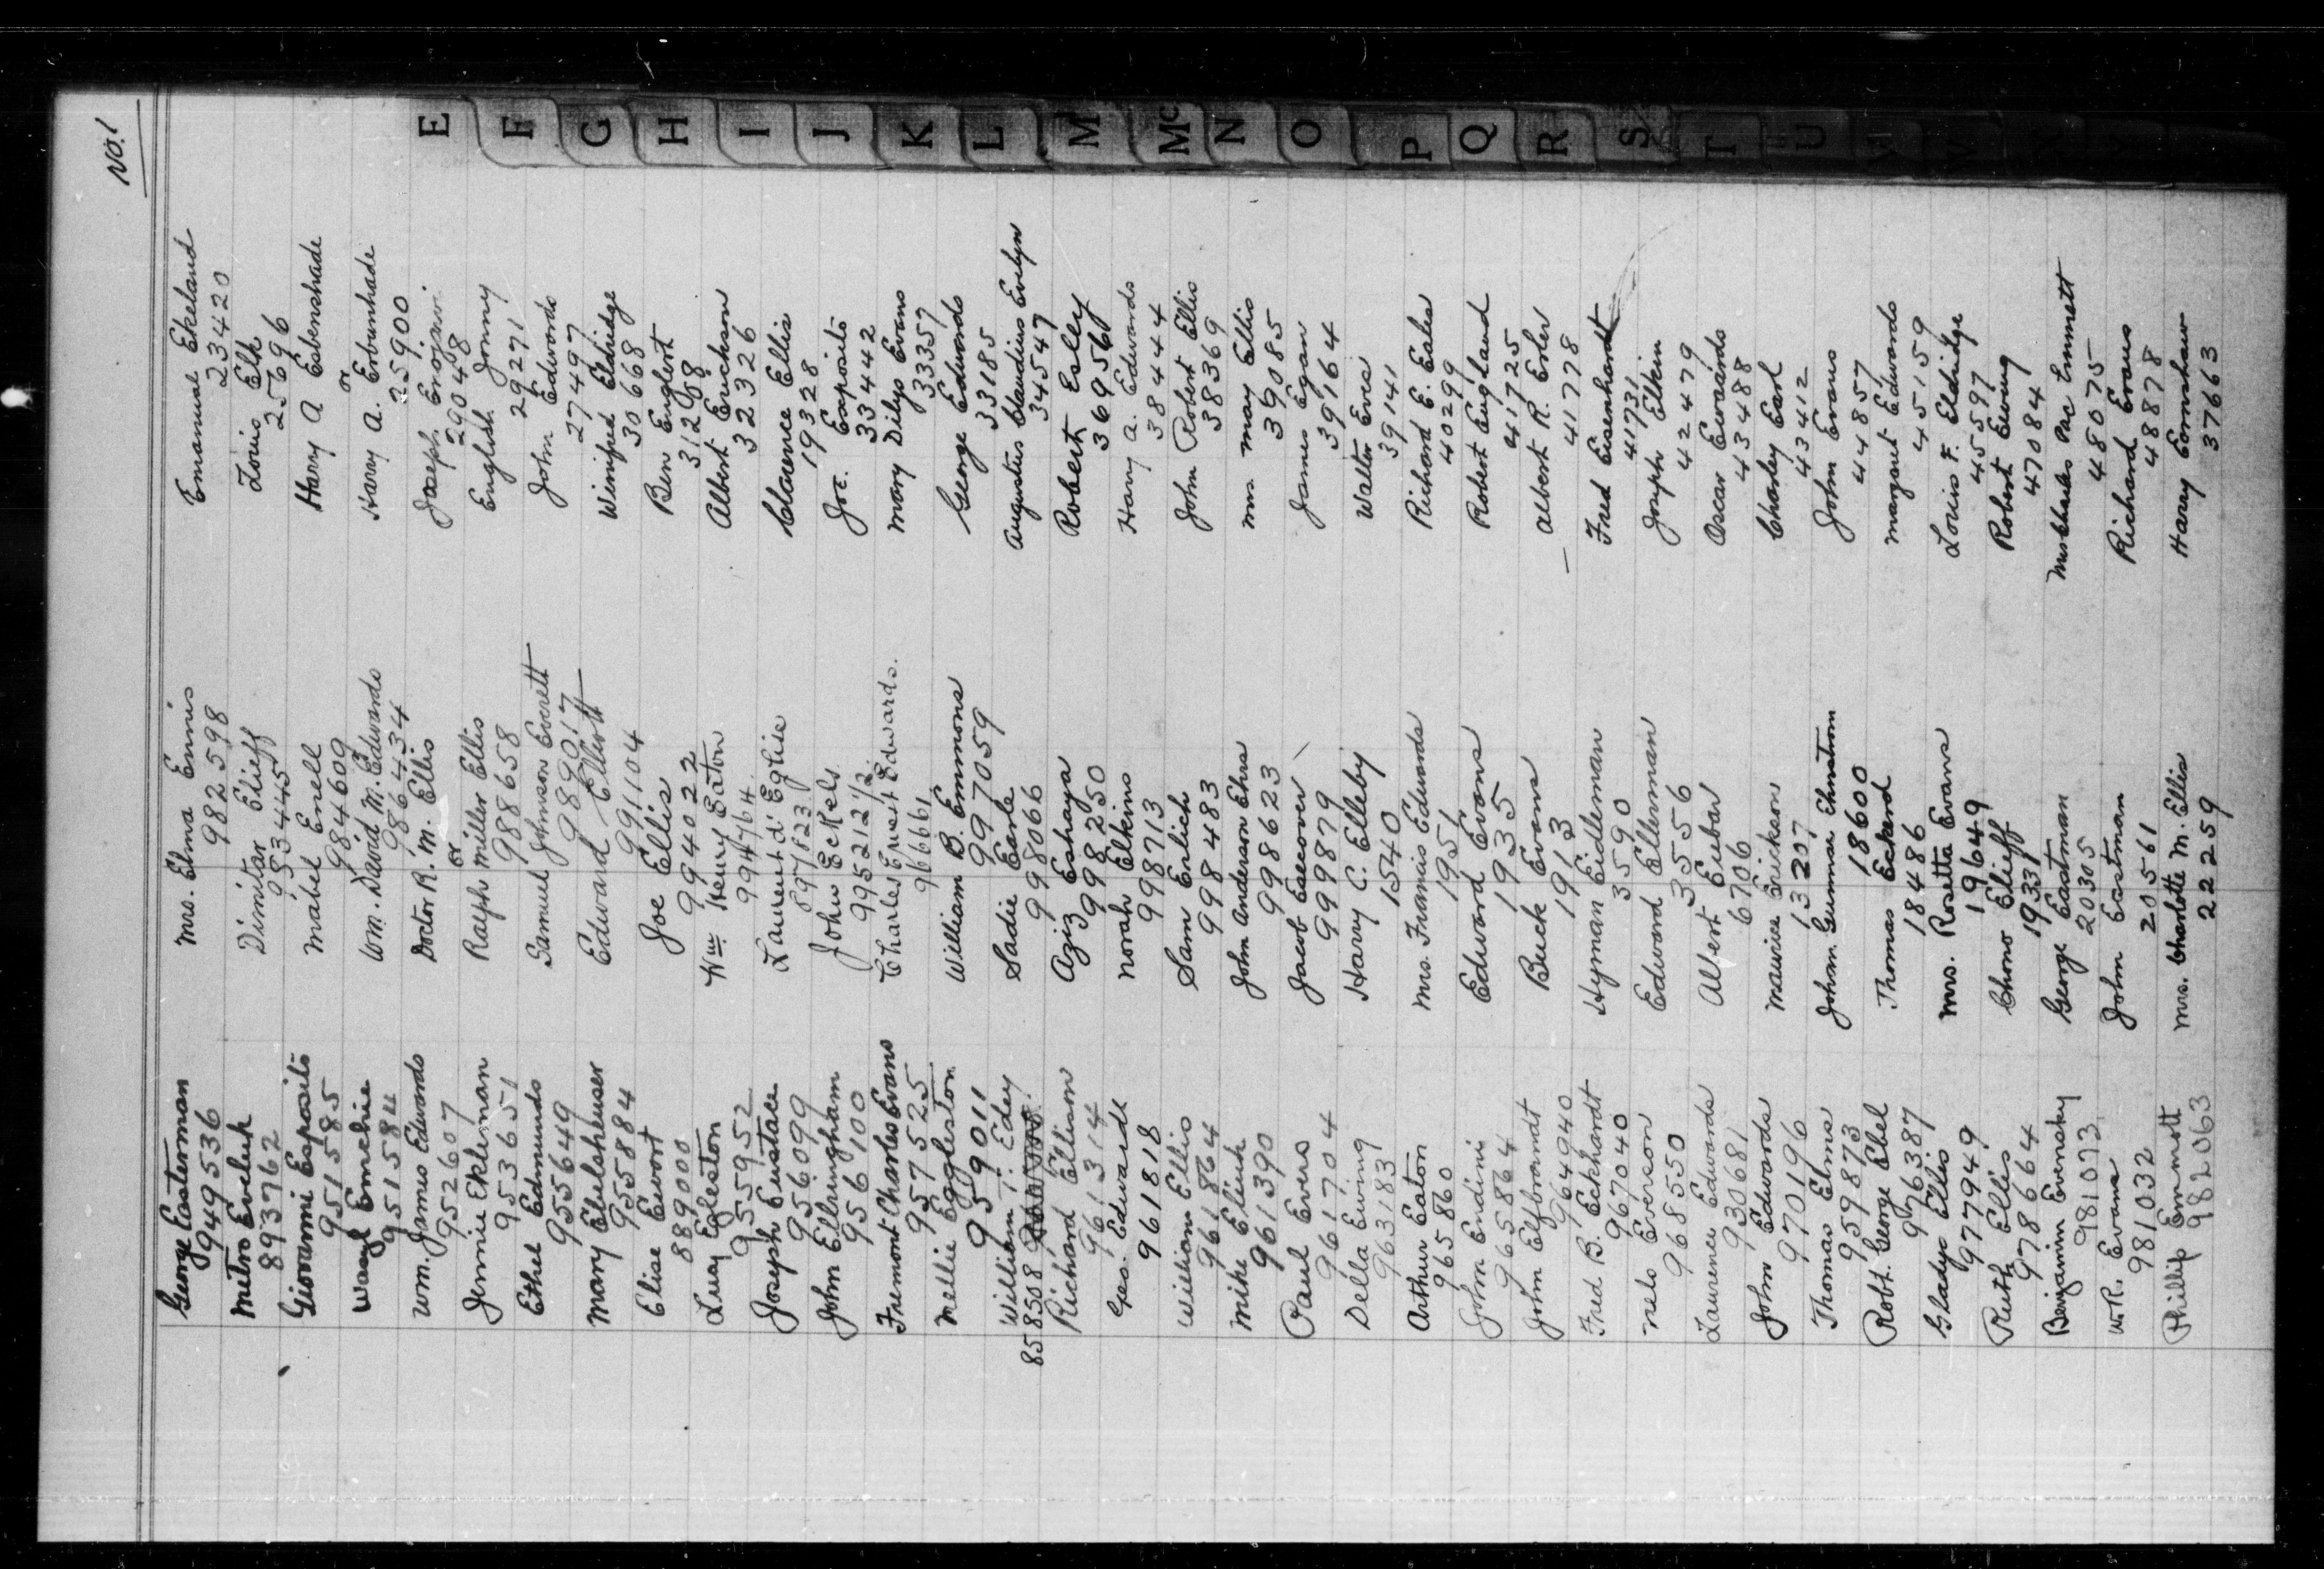 No. 1
George Easterman
949536
Mitro Eveluk
893762
Giovanni Esposito
951585
Wasyl Emechie
951584
Wm. James Edwards
952607
Jennie Ekleman
953651
Ethel Edmunds
955649
Mary Ebelsheuser
955884
Elise Ewort
889000
Lucy Egleston
955952
Joseph Eustace
956099
John Ellringham
956100
Fremont Charles Evans
957525
Mellie Eggleston
959011
William T. Edey
858508
Richard Ellison
961314
Geo. Edwards
961818
William Ellis
961864
Mike Eliuk
961390
Paul Evers
961704
Della Ewing
963183
Arthur Eaton
965860
John Endini
965864
John Elfbrandt
964940
Fred B. Eckhardt
967040
Nels Everson
968550
Laurence Edwards
930681
John Edwards
970196
Thomas Elms
959873
Robt. George Ebel
976387
Gladys Ellis
977949
Ruth Ellis
978664
Benjamin Evensky
981073
W. R. Evans
981032
Phillip Emmott
982063
Mrs. Elma Ennis
982598
Dimitar Elieff
953445
Mabel Enell
984609
Wm. David M. Edwards
986434
Doctor R. M. Ellis
or
Ralph Miller Ellis
988658
Samuel Johnson Everett
989017
Edward Elliott
991104
Joe Ellis
994022
Wm Henry Eaton
994764
Laurent d'Eglise
897823
John Eckels
995212 1/2
Charles Ernest Edwards.
966661
William B. Emmons
997059
Sadie Earle
998066
Aziz Eshaya
998250
Norah Elkins
998713
Sam Erlich
998483
John Anderson Ehrs
998623
Jacob Esecover
999879
Harry C. Elleby
1540
Mrs. Francis Edwards
1951
Edward Evans
1935
Buck Evans
1913
Hyman Eidleman
3590
Edward Ellerman
3556
Albert Eubar
6706
Maurice Erickson
13207
Johan Gunnar Ehnstrom
18600
Thomas Eckerd
18486
Mrs. Rosetta Evans
19649
Chono Elieff
19331
George Eastman
20305
John Eastman
20561
Mrs. Charlotte M. Ellis
22259
Emanuel Ekeland
23420
Louis Elk
25696
Harry A Esbenshade
or
Harry A. Erbunhade
25900
Joseph
29048
English Jonny
29271
John Edwards
27497
Winnifred Eldridge
30668
Ben Englert
31208
Albert Erickson
32326
Clarence Ellis
19328
Joe. Exposito
33442
Mary Dilys Evans
33357
George Edwards
33185
Augustus Claudius Evelyn
34547
Robert Eslly
36956
Harry A. Edwards
38444
John Robert Ellis
38369
Mrs May Ellis
39085
James Egan
39164
Walter Eves
39141
Richard E. Eales
40299
Robert England
41725
Albert R. Erler
41778
Fred Eisenhardt
41731
Joseph Elkin
42479
Oscar Ewards
43488
Charley Earl
43412
John Evans
44857
Margaret Edwards
45159
Louis F. Eldridge
45597
Robert Ewing
47084
Mrs Charles Pac Emmett
48075
Richard Evans
48878
Harry Earnshaw
37663
E
F
G
H
I
J
K
L
M
Mc
N
O
P
Q
R
S
T
U
V
W